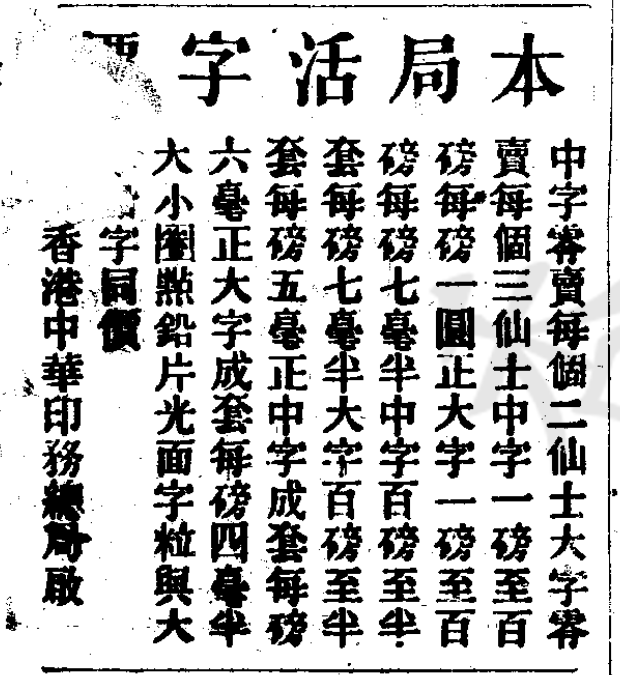 本局活字
中字零賣每個二仙士大字零
賣每個三仙士中字一磅至百
磅每磅一圓正大字一磅至百
磅每磅七毫半中字百磅至半
套每磅七毫半大字百磅至半
套每磅五毫正中字成套每磅
六毫正大字成套每磅四毫半
大小圈點鉛片光面字粒與大
字同價
香港中華印務總局啟